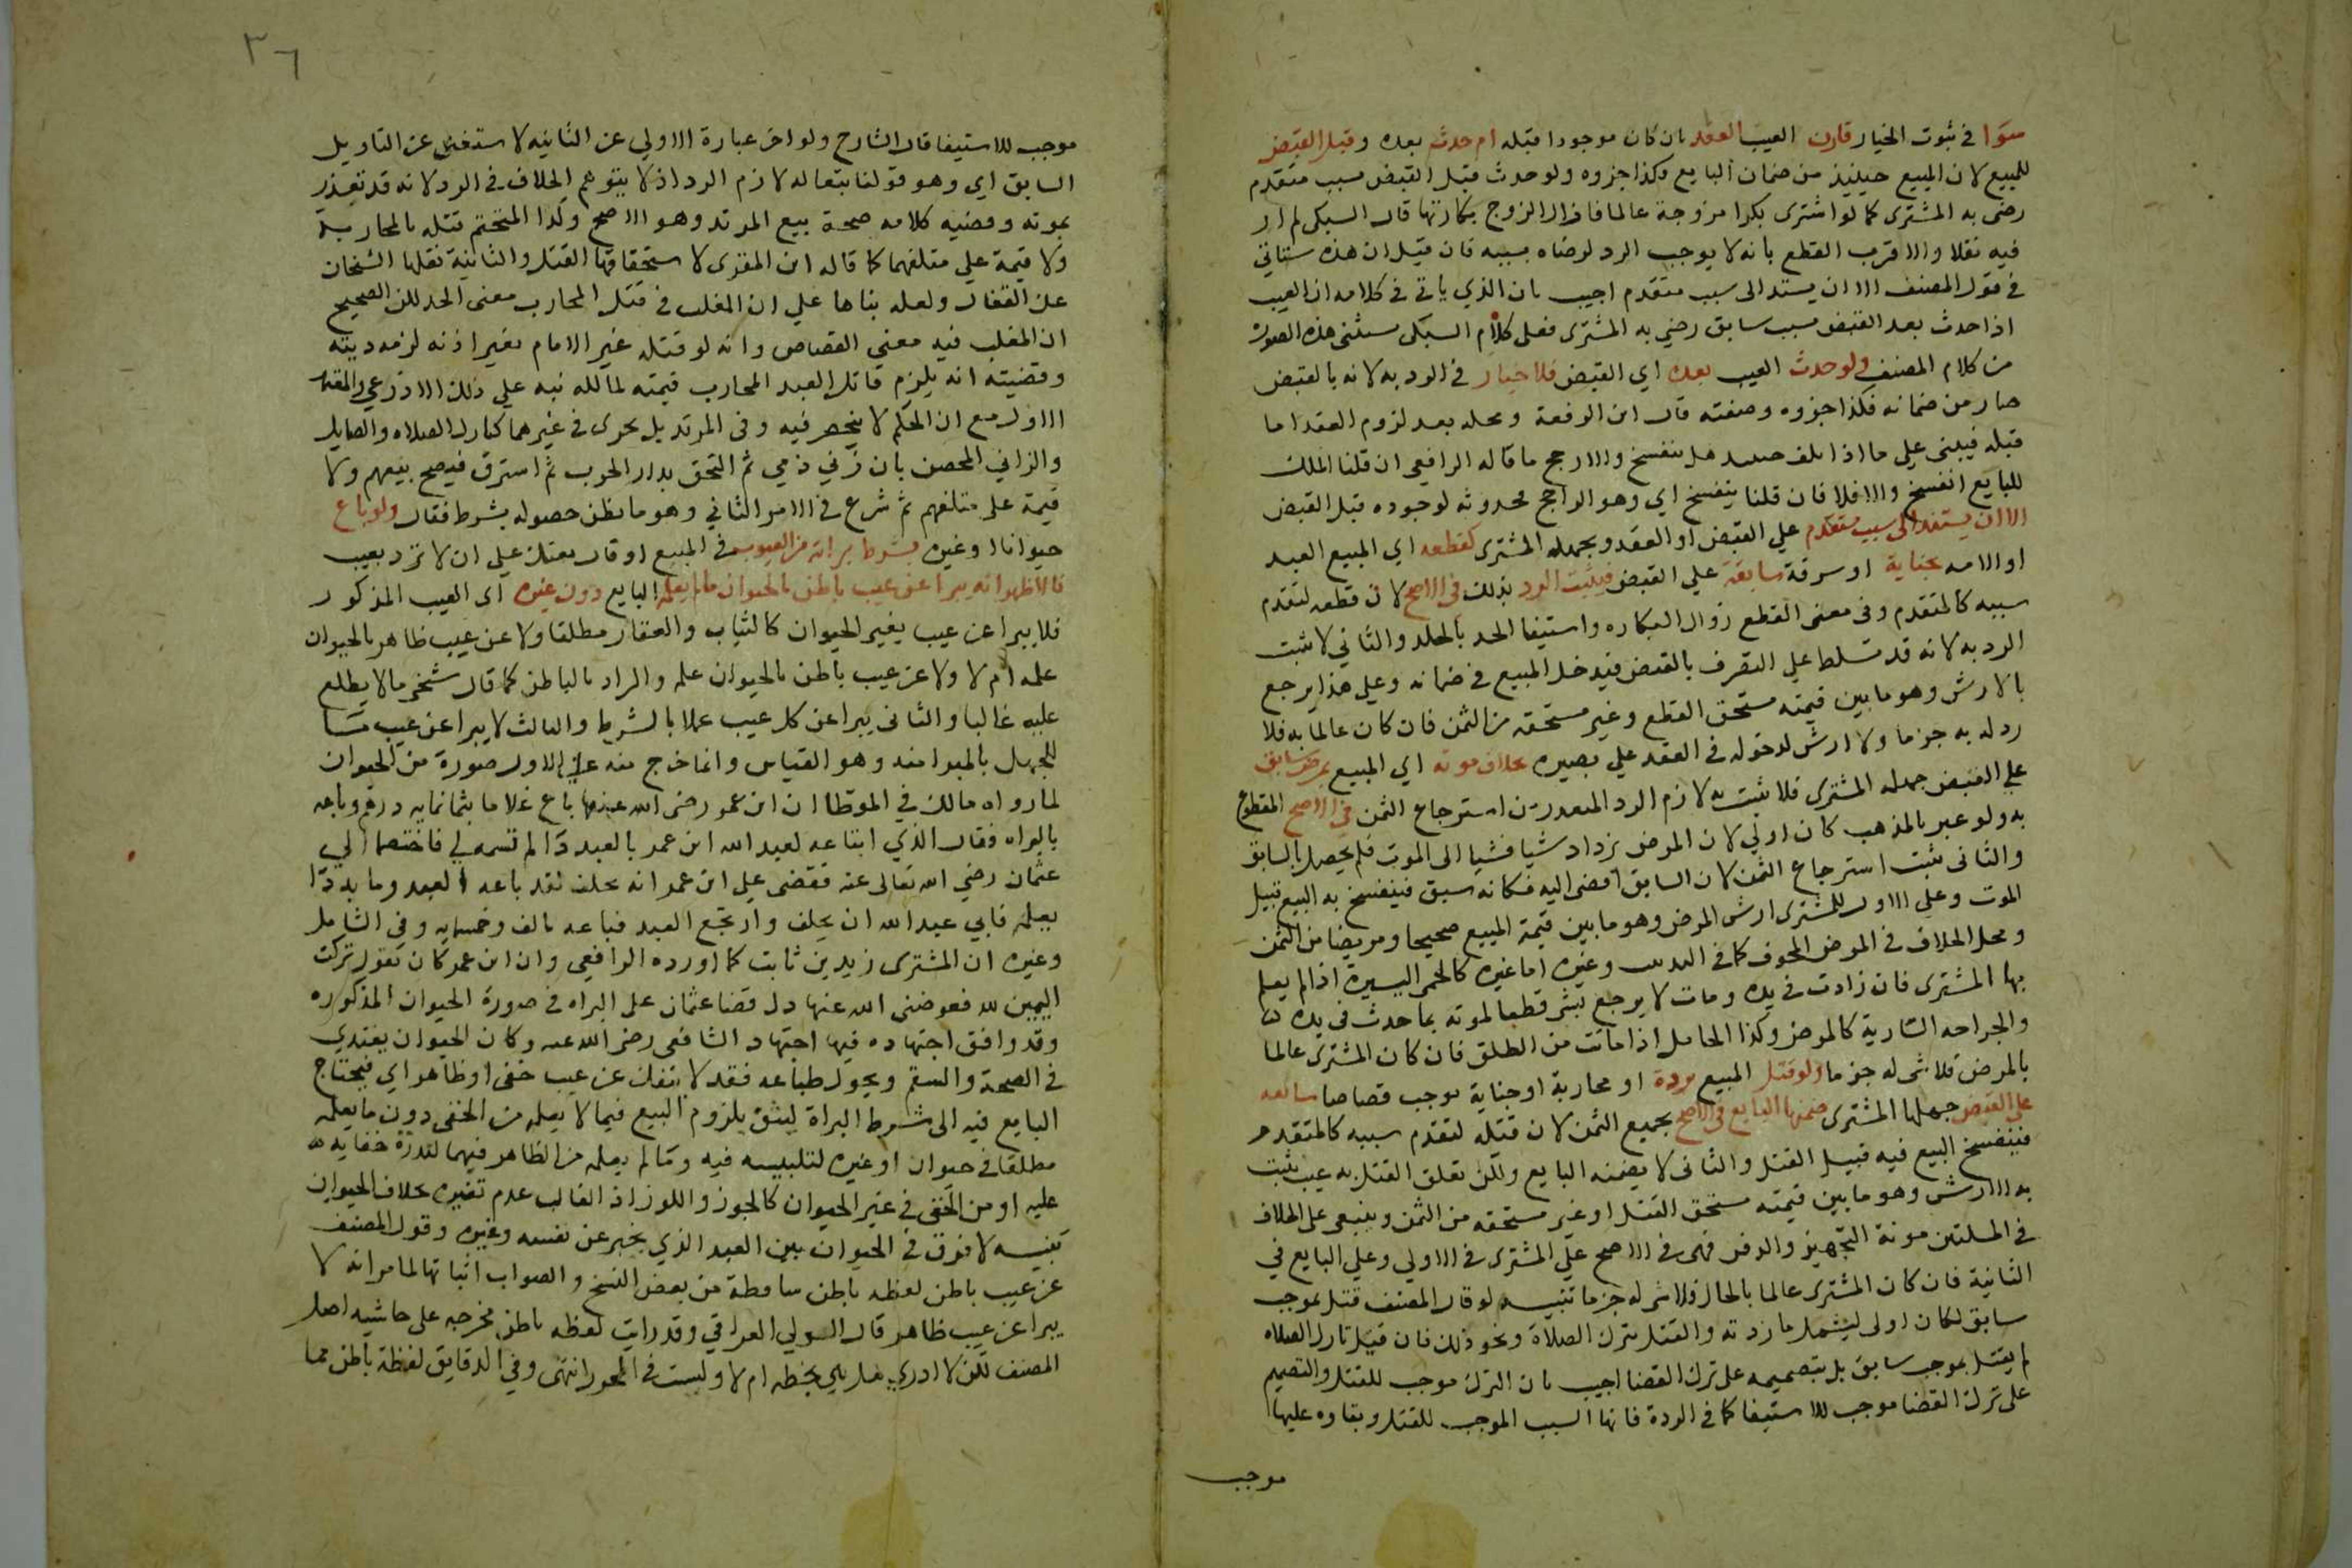 سوا في ثبوت الخيار قارن العيب العقد بان كان موجودا قبله ام حدث بعده وقبل القبض
للمبيع لان المبيع حينيذ من ضمان البايع وكذا جزوه ولو حدث قبل القبض بسبب متقدم
رضى به المشترى كما لو اشترى بكرا مزوجة عالما فازال الزوج بكارتها قال السبكى لم ار
فيه نقلا والاقرب القطع بانه لا يوجب الرد لرضاه بسببه فان قيل ان هذه ستاتي
في قول المصنف الا ان يستند الى سبب متقدم اجيب بان الذي ياتي في كلامه ان العيب
اذا حدث بعد القبض بسبب سابق رضي به المشترى فعلى كلام السبكى تستثنى هذه الصورة
من كلام المصنف ولو حدث العيب بعده اي القبض فلا خيار في الرد به لانه بالقبض
صار من ضمانه فكذا جزوه وصفته قال ابن الرفعة ومحله بعد لزوم العقد اما
قبله فيبنى على ما اذا تلف حينيذ هل ينفسخ والارجح ما قاله الرافعي ان قلنا الملك
للبايع انفسخ والا فلا فان قلنا ينفسخ اي وهو الراجح فحدوثه لوجوده قبل القبض
الا ان يستند الى سبب متقدم على القبض او العقد ويجهله المشترى كقطعه اي المبيع العبد
او الامه بجناية او سرقة سابقة على القبض فيثبت الرد بذلك في الاصح لان قطعه لتقدم
سببه كالمتقدم وفى معنى القطع زوال البكاره واستيفا الحد بالجلد والثاني لا يثبت
الرد به لانه قد تسلط على التصرف بالقبض فيدخل المبيع في ضمانه وعلى هذا يرجع
بالارش وهو ما بين قيمته مستحق القطع وغير مستحقه من الثمن فان كان عالما به فلا
رد له به جزما ولا ارش لدخوله في العقد على بصيره بخلاف موته اي المبيع بمرض سابق
على القبض جهله المشترى فلا يثبت به لازم الرد المتعذر من استرجاع الثمن في الاصح المقطوع
به ولو عبر بالمذهب كان اولى لان المرض يزداد شيا فشيا الى الموت فلم يحصل بالسابق
والثانى يثبت استرجاع الثمن لان السابق افضى اليه فكانه سبق فينفسخ به البيع قبيل
الموت وعلى الاول للمشترى ارش المرض وهو ما بين قيمة المبيع صحيحا ومريضا من الثمن
ومحل الخلاف في المرض المخوف كما في وغيره اما غيره كالحمى اليسيرة اذا لم يعلم
بها المشترى فان زادت في يده ومات لا يرجع بشى قطعا لموته بما حدث في يده
والجراحه السارية كالمرض وكذا الحامل اذا ماتت من الطلق فان كان المشترى عالما
بالمرض فلا شى له جزما ولو قتل المبيع بردة او محاربة او جناية توجب قصاصا سابقه
على القبض جهلها المشترى ضمنها البايع في الاصح بجميع الثمن لان قتله لتقدم سببه كالمتقدم
فينفسخ البيع فيه قبيل القتل والثانى لا يضمنه البايع ولكن تعلق القتل به عيب يثبت
به الارش وهو ما بين قيمته مستحق القتل او غير مستحقه من الثمن وينبغى على الخلاف
في المسلتين مونة التجهيز والدفن فهى في الاصح على المشترى في الاولى وعلى البايع في
الثانية فان كان المشترى عالما بالحال فلا شى له جزما تنبيه لو قال المصنف قتل بموجب
سابق لكان اولى ليشمل ما زدته والقتل بترك الصلاة ونحو ذلك فان قيل تارك الصلاه
لم يقتل بموجب سابق بل بتصميمه على ترك القضا اجيب بان الترك موجب للقتل والتصميم
على ترك القضا موجب للاستيفا كما في الردة فانها السبب الموجب للقتل وبقاوه عليها
موجب
٣٦
موجب للاستيفا قال الشارح ولو اخر عبارة الاولى عن الثانيه لاستغنى عن التاويل
السابق اي وهو قولنا بتعاله لازم الرد اذ لا يتوهم الخلاف في الرد لانه قد تعذر
بموته وقضيه كلامه صحة بيع المرتد وهو الاصح وكذا المتحتم قتله بالمحاربة
ولا قيمة على متلفهما كما قاله ابن المقرى لاستحقاقها القتل والثانية نقلها الشيخان
عن القفال ولعله بناها على ان المغلب في قتل المحارب معنى الحد لكن الصحيح
ان المغلب فيه معنى القصاص وانه لو قتله غير الامام بغير اذنه لزمه ديته
وقضيته انه يلزم قاتل العبد المحارب قيمته لمالكه نبه على ذلك الاذرعي والمعتمد
الاول مع ان الحكم لا ينحصر فيه وفى المرتد بل يجرى في غيرهما كتارك الصلاه والصايل
والزاني المحصن بان زني ذمي ثم التحق بدار الحرب ثم استرق فيصح بيعهم ولا
قيمة على متلفهم ثم شرع في الامر الثاني وهو ما يظن حصوله بشرط فقال ولو باع
حيوانا او غيره بشرط براته من العيوب في المبيع او قال بعتك على ان لا ترد بعيب
فالاظهر انه يبرا عن عيب باطن بالحيوان ما لم يعلمه البايع دون غيره اى العيب المذكور
فلا يبرا عن عيب بغير الحيوان كالثياب والعقار مطلقا ولا عن عيب ظاهر بالحيوان
علمه ام لا ولا عن عيب باطن بالحيوان علمه والمراد بالباطن كما قال شيخى ما لا يطلع
عليه غالبا والثانى يبرا عن كل عيب عملا بالشرط والثالث لا يبرا عن عيب ما
للجهل بالمبرا منه وهو القياس وانما خرج منه على الاول صورة من الحيوان
لما رواه مالك في الموطا ان ابن عمر رضى الله عنهما باع غلاما بثمانمايه درهم وباعه
بالبراه فقال الذي ابتاعه لعبد الله ابن عمر بالعبد دا لم تسمه لي فاختصما الى
عثمان رضي الله تعالى عنه فقضى على ابن عمر انه يحلف لقد باعه العبد وما به دا
يعلمه فابى عبد الله ان يحلف وارتجع العبد فباعه بالف وخمسمايه وفى الشامل
وغيره ان المشترى زيد بن ثابت كما اورده الرافعى وان ابن عمر كان يقول تركت
اليمين لله فعوضنى الله عنها دل قضا عثمان على البراه في صورة الحيوان المذكوره
وقد وافق اجتهاده فيها اجتهاد الشافعى رضى الله عنه وكان الحيوان يغتدي
في الصحة والسقم ويحول طباعه فقد لا ينفك عن عيب خفى او ظاهر اي فيحتاج
البايع فيه الى شرط البراة ليثق بلزوم البيع فيما لا يعلمه من الخفى دون ما يعلمه
مطلقا في حيوان او غيره لتلبيسه فيه وما لم يعلمه من الظاهر فيهما لندرة خفايه
عليه او من الخفى في غير الحيوان كالجوز واللوز اذ الغالب عدم تغيره بخلاف الحيوان
تنبيه لا فرق في الحيوان بين العبد الذي يخبر عن نفسه وغيره وقول المصنف
عن عيب باطن لفظه باطن ساقطة من بعض النسخ والصواب اثباتها لما مر انه لا
يبرا عن عيب ظاهر قال الولي العراقي وقد رايت لفظه باطن مخرجه على حاشيه اصل
المصنف لكن لا ادري هل هى بخطه ام لا وليست في المحرر انتهى وفي الدقايق لفظة باطن مما